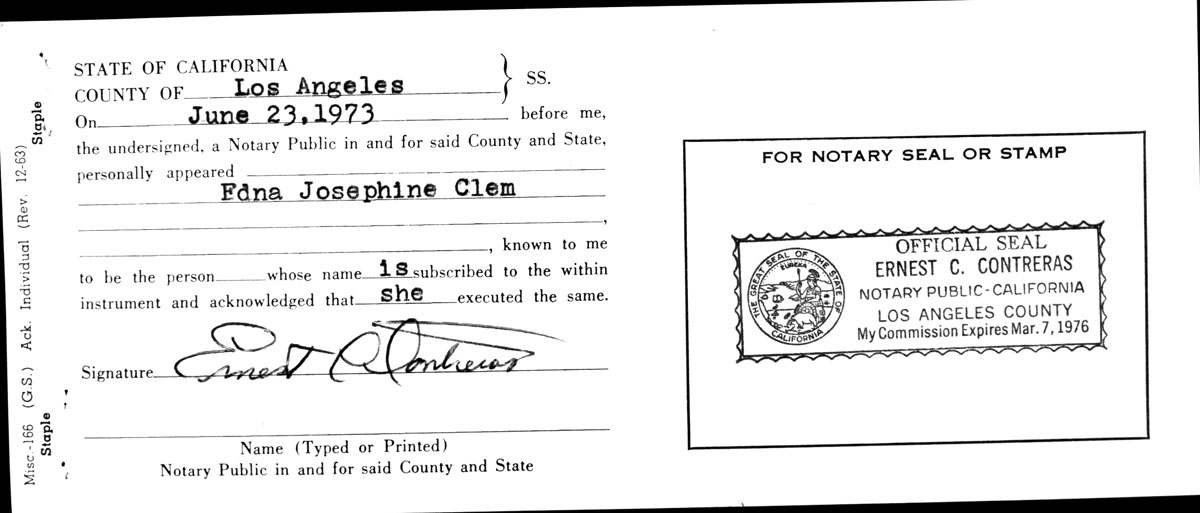 STATE OF CALIFORNIA
COUNTY OF Los Angeles } SS.
On June 23,1973 before me,
the undersigned, a Notary Public in and for said County and State,
personally appeared
Edna Josephine Clem
,
, known to me
to be the person whose name is subscribed to the within
instrument and acknowledged that she executed the same.
Signature Ernest C Contreras
Name (Typed or Printed)
Notary Public in and for said County and State
Misc.-166 (G.S.) Ack. Individual (Rev. 12-63)
Staple
Staple
FOR NOTARY SEAL OR STAMP
OFFICIAL SEAL
ERNEST C. CONTRERAS
NOTARY PUBLIC-CALIFORNIA
LOS ANGELES COUNTY
My Commission Expires Mar. 7, 1976
THE GREAT SEAL OF THE STATE OF CALIFORNIA
EUREKA